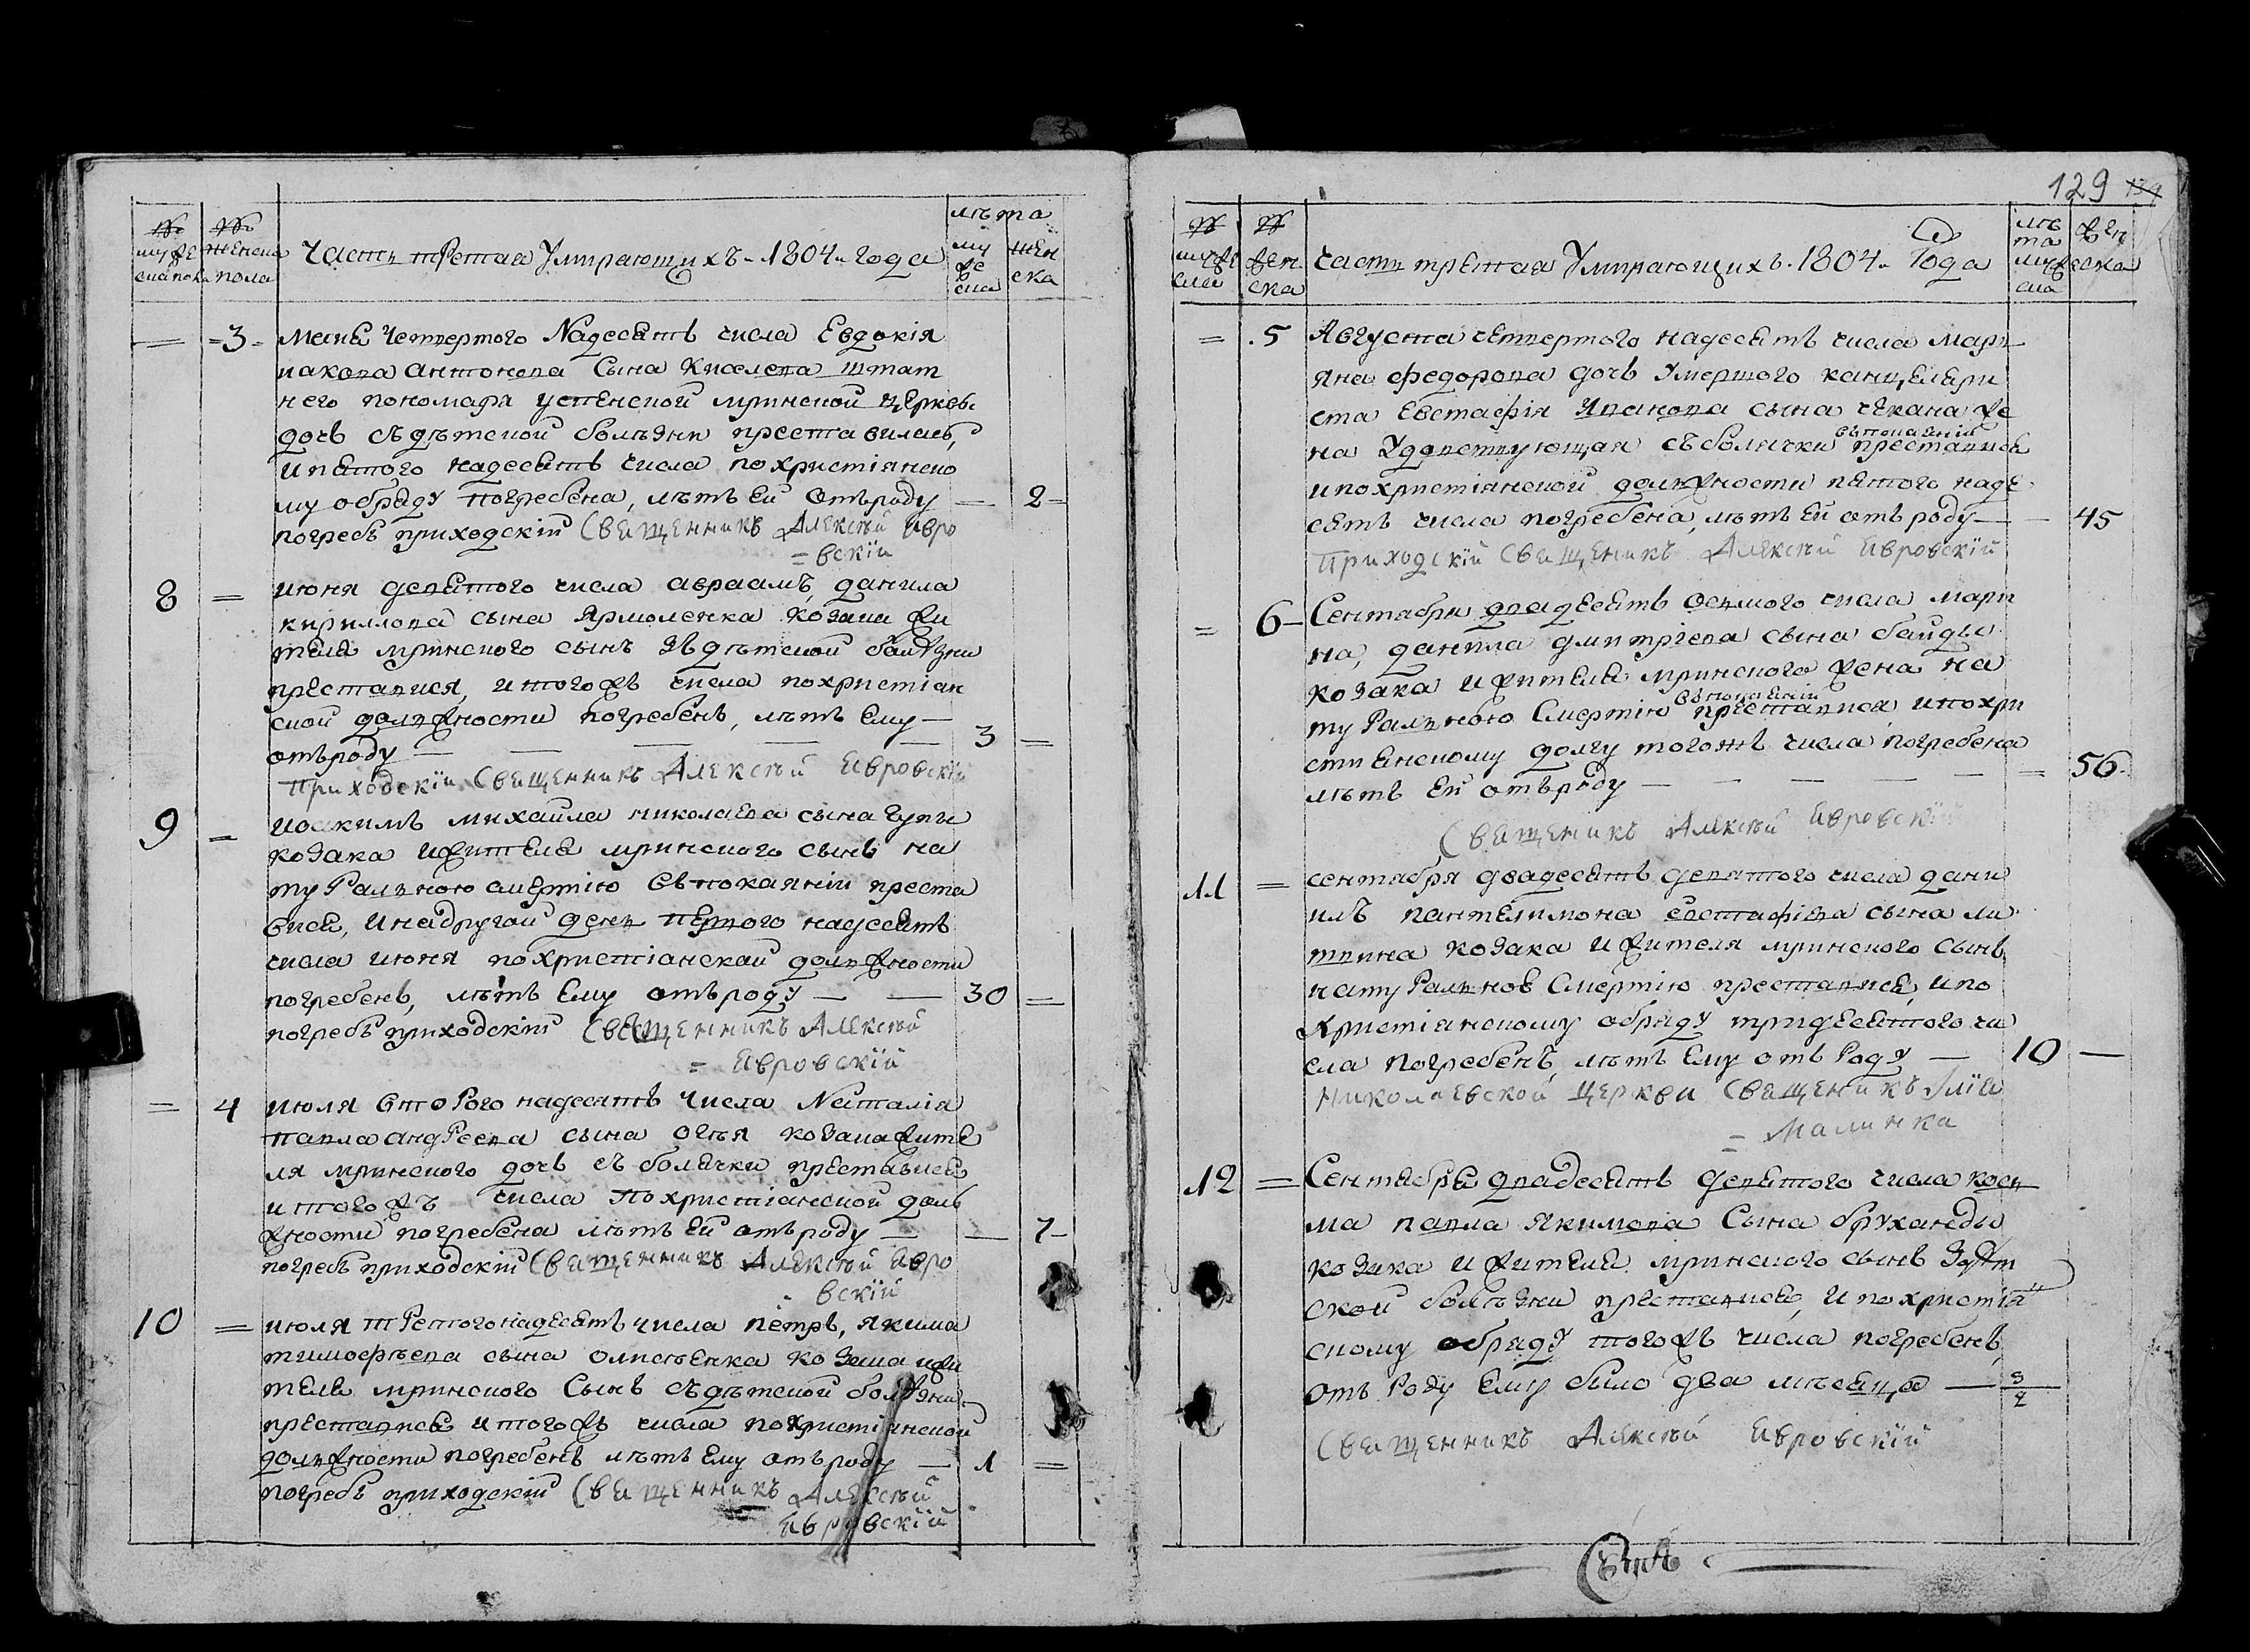 129
лѣта
№ муже
ска пол
№ женска
пола
Часть третая Умирающихъ 1804 года
му
же
ска
жен
ска
3 маия четвертого Надесять числа Евдокія
иакова антонова Сына Киселева штат
него пономаря успенской мринской церкви
дочь съ дѣтской болѣзни преставилась,
и пятого надесять числа по христіянско
му обряду погребена, лѣтъ ей отъ роду — 2
погребъ приходскій Священникъ Алексѣй Явро
= вскій
8 = июня девятого числа авраамъ, данила
кириллова сына Ярмоленка козака жи
теля мринского сынъ з дѣтской болѣзни
преставися, и тогожъ числа по христіан
ской должности погребенъ, лѣтъ ему —
отъ роду — 3 =
Приходскій Священникъ Алексѣй Явровскій
9 = иоакимъ михайла николаева сына
козака и жителя мринского сынъ на
туральною смертію въ покаяніи преста
вися, и на другой день первого надесять
числа июня по христіанской должности
погребенъ, лѣтъ ему отъ роду — 30 =
погребъ приходскій Священникъ Алексѣй
= Явровскій
= 4 июля второго надесять числа Наталія
павла андреева сына огія козака жите
ля мринского дочь съ болячки преставися
и тогожъ числа по христіанской долъ
жности погребена лѣтъ ей отъ роду — 7
погребъ приходскій Священникъ Алексѣй Явро
вскій
10 = июля третогонадесять числа петръ, якима
тимофѣева сына олисѣенка козака и жи
теля мринского Сынъ съ дѣтской болѣзни
преставися и тогожъ числа по христіянской
должности погребенъ лѣтъ ему отъ роду — 1 =
погребъ приходскій Священникъ Алексѣй
Явровскій
№
муже
ска
№
жен
ска
Часть третая Умирающихъ 1804 Года
лѣ
та
муж
ска
жен
ска
= 5 Августа четвертого надесять числа мари
яна федорова дочь Умершого канцеляри
ста Евстафія Иванова сына чекана же
на Удовствующая съ болячки въ покаяніи преставися
и по христіянской должности пятого наде
сять числа погребена, лѣтъ ей отъ роду — 45
Приходскій Священикъ Алексѣй Явровскій
= 6 Сентября двадесять осмого числа мари
на, данила дмитріева сына байды
козака и жителя мринского жена на
туральною Смертію въ покаяніи преставися, и по хри
стиянскому долгу тогожъ числа погребена
лѣтъ ей отъ роду — 56
Священикъ Алексѣй Явровскій
11 = сентября двадесять девятого числа дани
илъ пантелимона евстафіева сына ли
твина козака и жителя мринского Сынъ
натуральнов Смертію преставися, и по
Христіянскому обряду тридесятого чи
сла погребенъ, лѣтъ Ему отъ Роду — 10 —
Николаевской церкви Священикъ Илія
= Малинка
12 = Сентября двадесять девятого числа косъ
ма павла Якимова Сына бруханды
козака и жителя мринского сынъ З дѣт
ской болѣзни преставися, и по христіян
скому обряду тогожъ числа погребенъ,
отъ Роду Ему было два мѣсяца —
Священникъ Алексѣй Явровскій